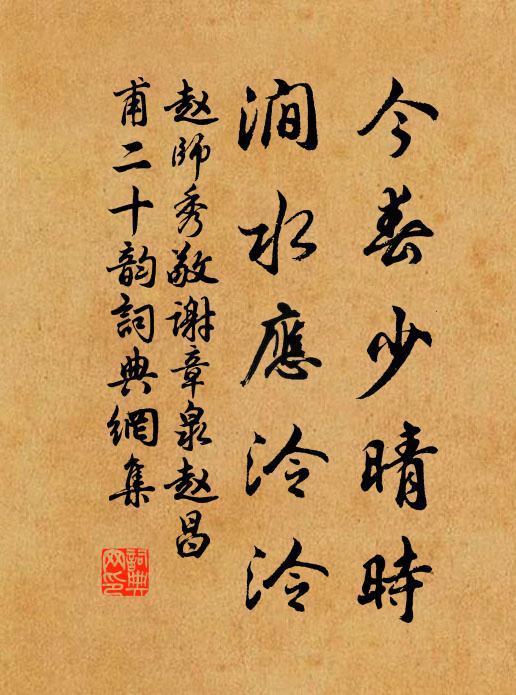 今春少晴時
澗水應泠泠
赵師秀敬谢章泉赵昌
甫二十韵詞典網集
詞典网印